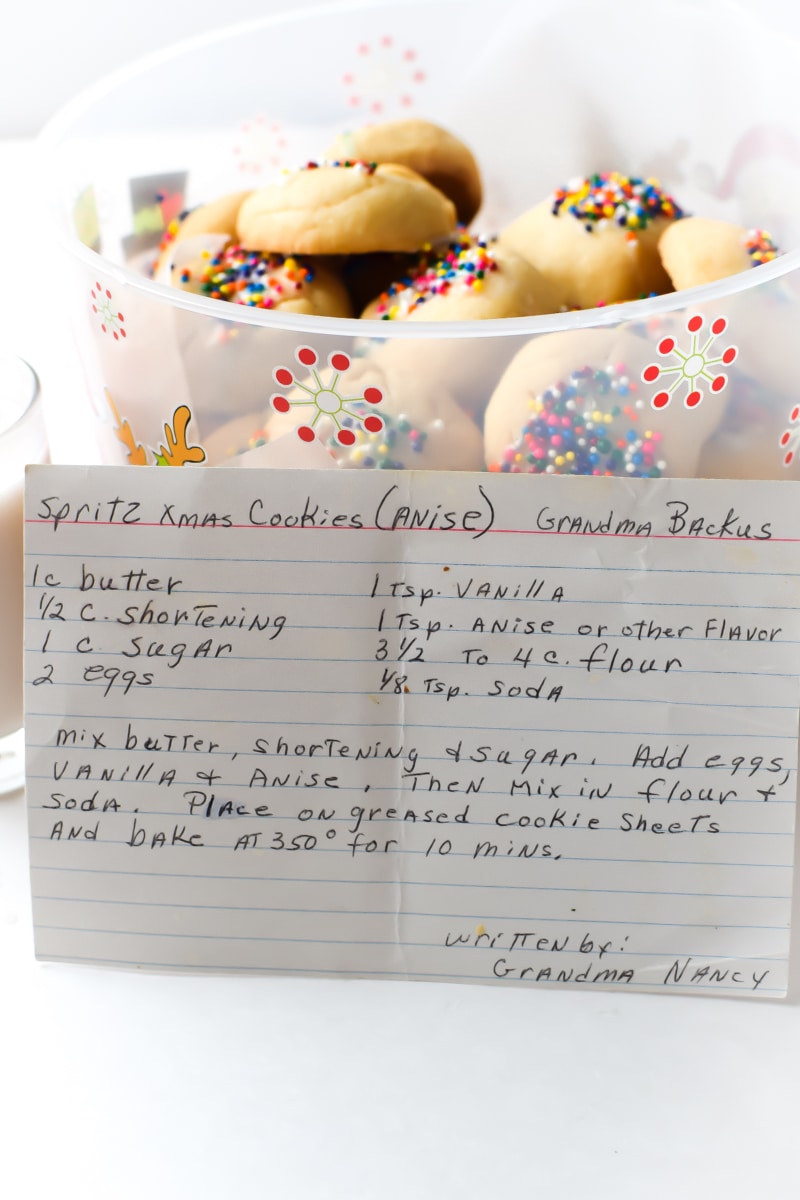 Spritz Xmas Cookies (Anise) Grandma Backus
1c butter 1 Tsp. Vanilla
1/2 c. shortening 1 Tsp. Anise or other Flavor
1 c. sugar 3 1/2 to 4 c. flour
2 eggs 1/8 Tsp. soda
mix butter, shortening & sugar. Add eggs,
Vanilla & Anise. Then mix in flour &
soda. Place on greased cookie sheets
and bake at 350° for 10 mins.
written by:
Grandma Nancy